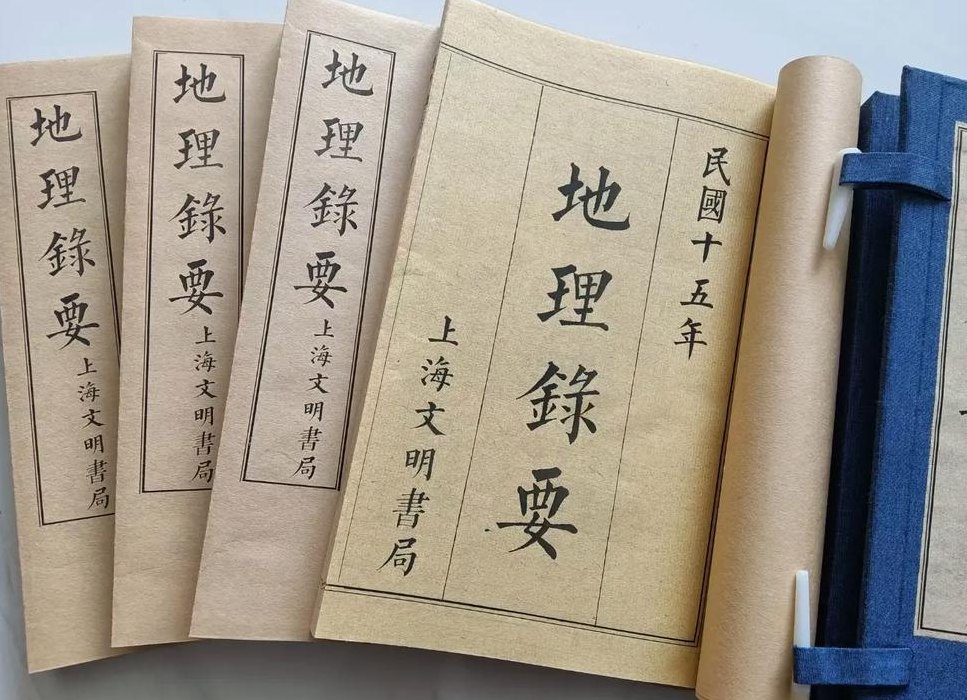 地理錄要
上海文明書局
地理錄要
上海文明書局
地理錄要
上海文明書局
民國十五年
地理錄要
上海文明書局